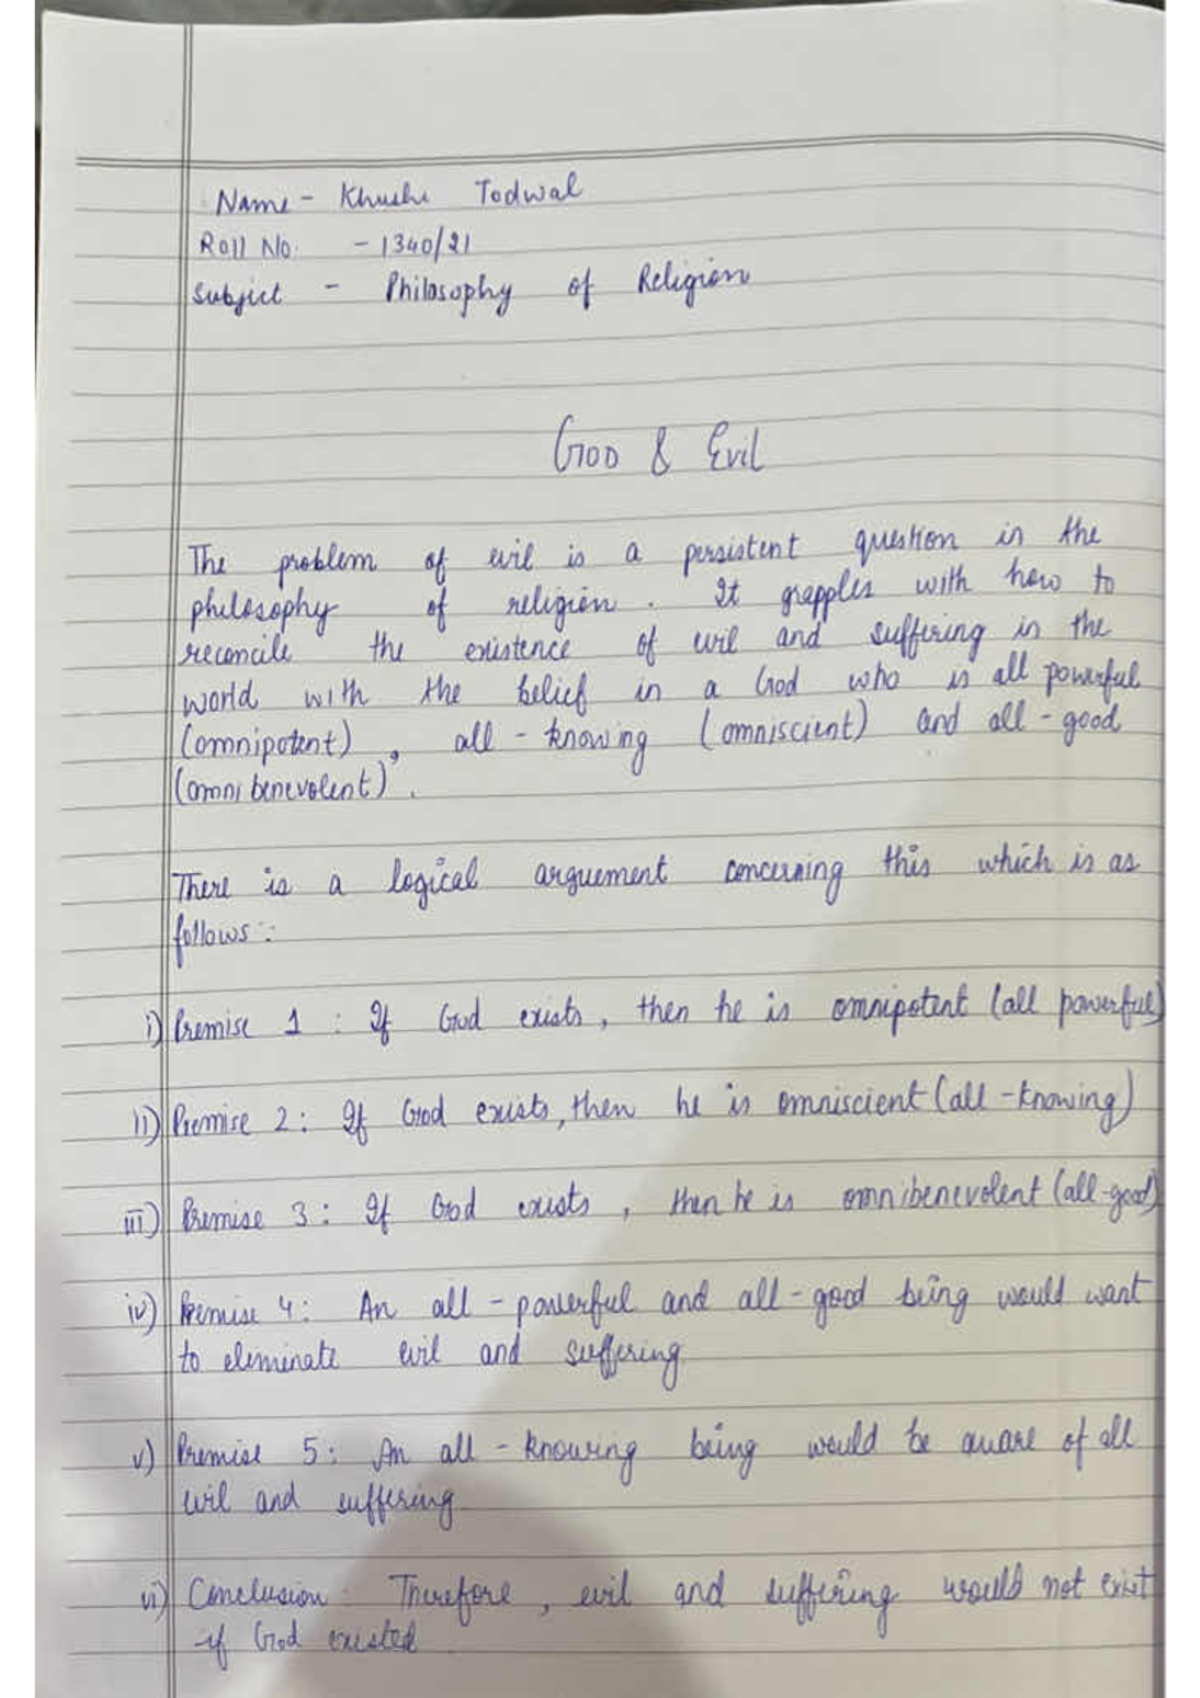 Name - Khushi Todwal
Roll No. - 1340/21
Subject - Philosophy of Religion
God & Evil
The problem of evil is a persistent question in the
philosophy of religion. It grapples with how to
reconcile the existence of evil and suffering in the
world with the belief in a God who is all powerful
(omnipotent), all-knowing (omniscient) and all-good
(omnibenevolent).
There is a logical arguement concerning this which is as
follows:
i) Premise 1 : If God exists, then he is omnipotent (all powerful)
ii) Premise 2: If God exists, then he is omniscient (all-knowing)
iii) Premise 3: If God exists, then he is omnibenevolent (all-good)
iv) Premise 4: An all-powerful and all-good being would want
to eliminate evil and suffering
v) Premise 5: An all-knowing being would be aware of all
evil and suffering
vi) Conclusion: Therefore, evil and suffering would not exist
if God existed